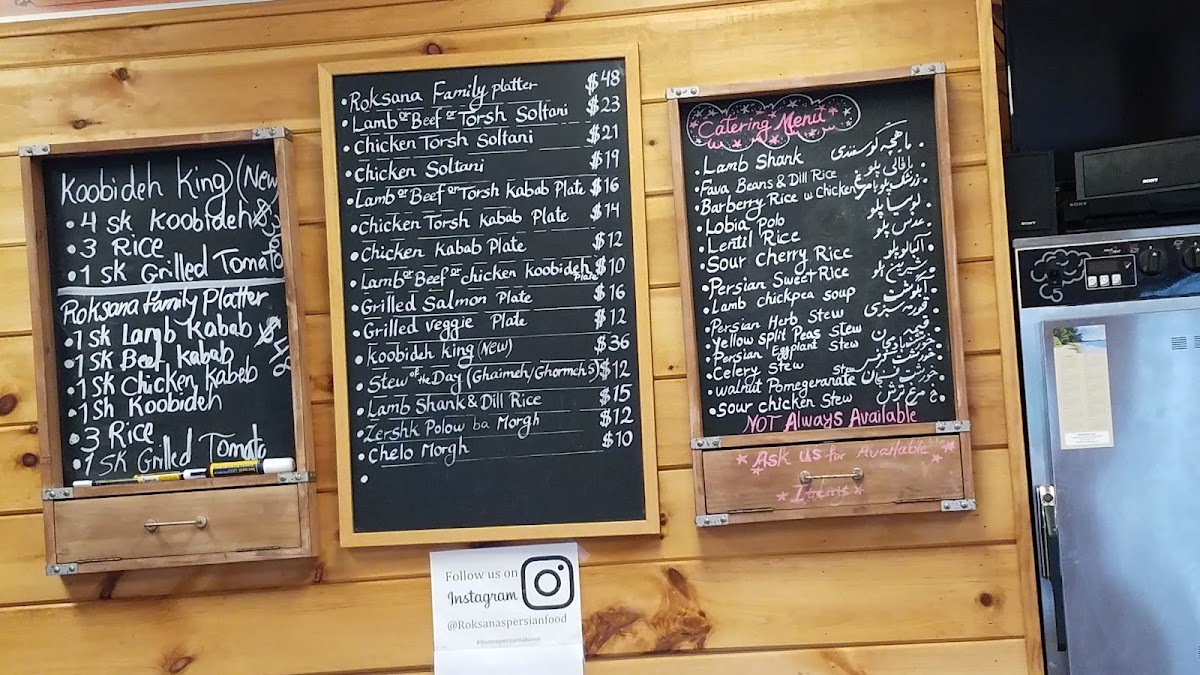 Koobideh King (New
• 4 sk Koobideh $36
• 3 Rice
• 1 sk Grilled Tomato
Roksana family Platter
• 1 sk Lamb Kabab $48
• 1 sk Beef Kabab
• 1 sk Chicken Kabeb
• 1 sh Koobideh
• 3 Rice
• 1 sk Grilled Tomato
• Roksana Family platter $48
• Lamb or Beef or Torsh Soltani $23
• Chicken Torsh Soltani $21
• Chicken Soltani $19
• Lamb or Beef or Torsh Kabab Plate $16
• Chicken Torsh Kabab Plate $14
• Chicken Kabab Plate $12
• Lamb or Beef or chicken koobideh Plate $10
• Grilled Salmon Plate $16
• Grilled veggie Plate $12
• Koobideh king (New) $36
• Stew of the Day (Ghaimeh/Ghormeh S) $12
• Lamb Shank & Dill Rice $15
• Zershk Polow ba Morgh $12
• Chelo Morgh $10
Catering Menu
• Lamb Shank ماهیچه گوسفندی
• Fava Beans & Dill Rice باقالی پلو
• Barberry Rice w Chicken زرشک پلو با مرغ
• Lobia Polo لوبیا پلو
• Lentil Rice عدس پلو
• Sour Cherry Rice آلبالو پلو
• Persian Sweet Rice شیرین پلو
• Lamb chickpea soup آبگوشت
• Persian Herb Stew قورمه سبزی
• Yellow split Peas Stew قیمه
• Persian Eggplant Stew
• Celery Stew
• walnut Pomegranate Stew خورشت فسنجان
• Sour chicken Stew
NOT Always Available
Ask us for Available
Items
Follow us on
Instagram
@Roksanaspersianfood
SONY
SONY